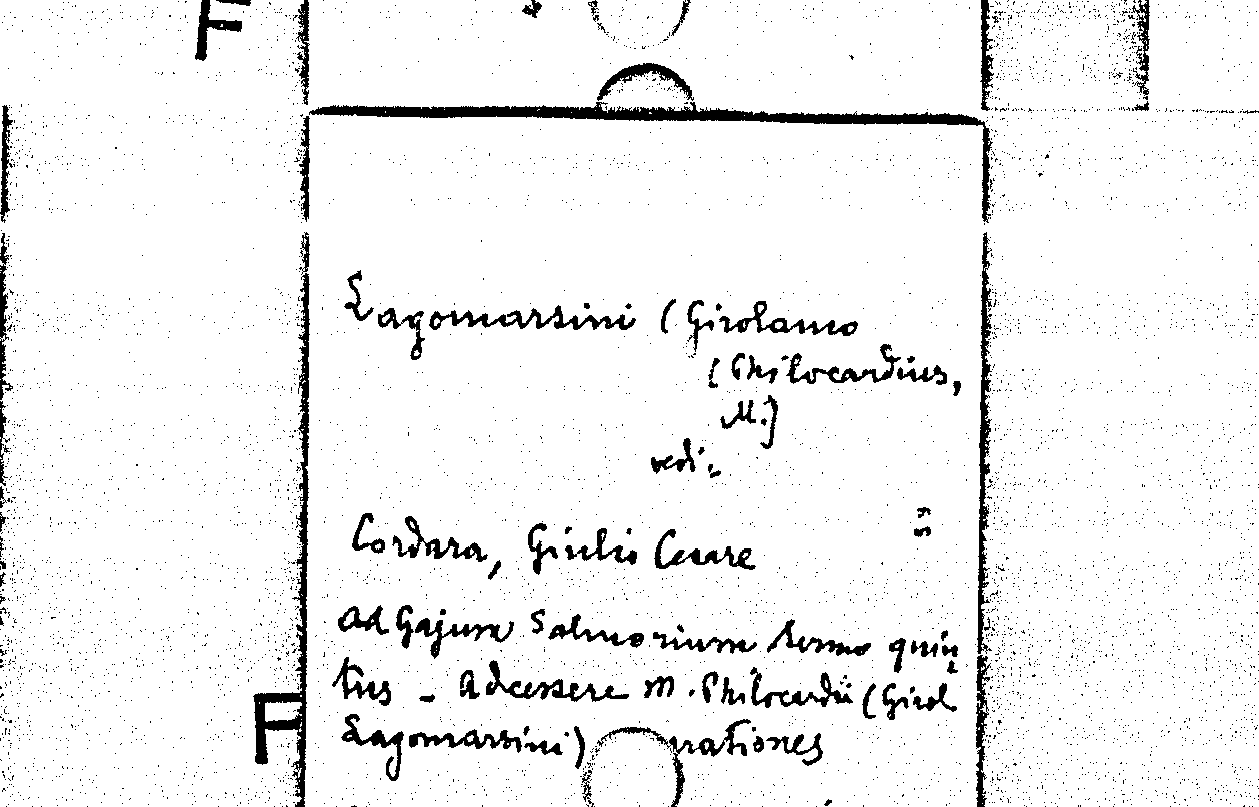 F
Lagomarsini (Girolamo
[Philocardius,
M.]
vedi:
Cordara, Giulio Cesare
Ad Gajum Salmorium Sermo quin
tus - Adcessere M. Philocardii (Girol
F
Lagomarsini) rationes